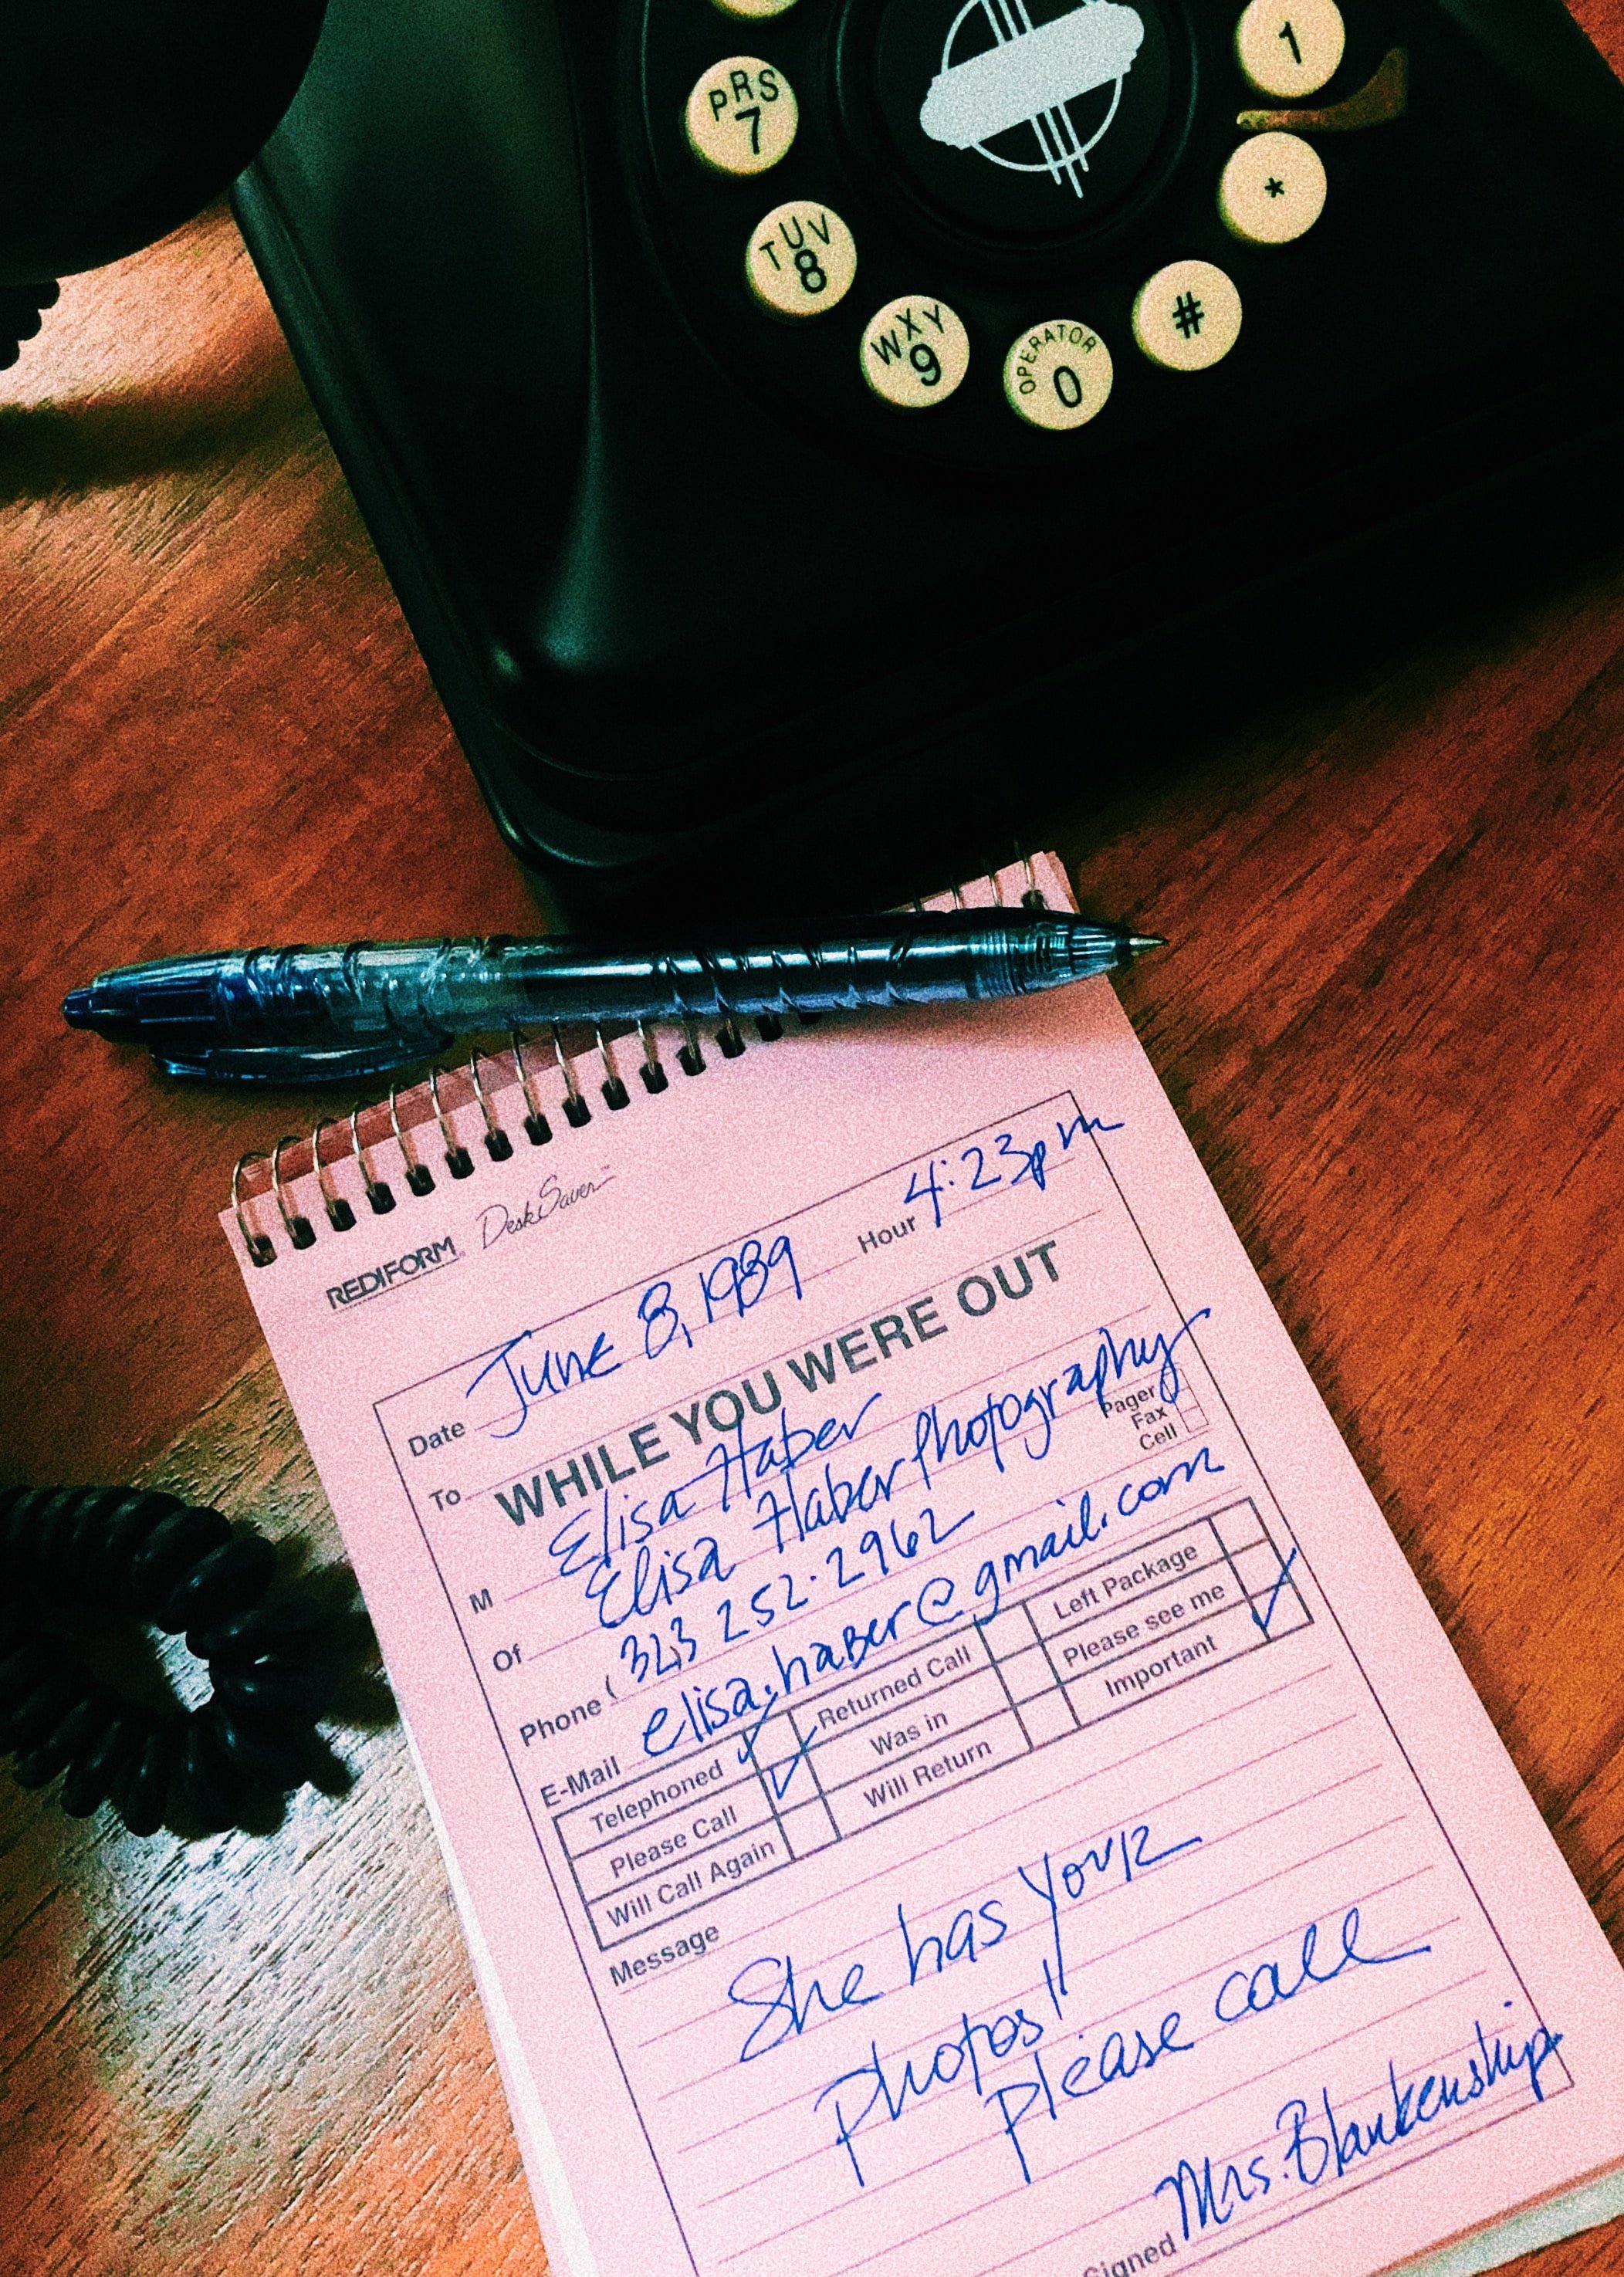 1
PRS
7
*
TUV
8
#
WXY
9
OPERATOR
0
REDIFORM DeskSaver™
Date June 8, 1989 Hour 4:23pm
To
WHILE YOU WERE OUT
M Elisa Haber
Of Elisa Haber Photography
Pager
Fax
Cell
Phone ( 323 252.2962
E-Mail elisa.haber@gmail.com
Telephoned Returned Call Left Package
Please Call Was in Please see me
Will Call Again Will Return Important
Message
She has your
photos!!
Please call
Signed Mrs. Blankenship